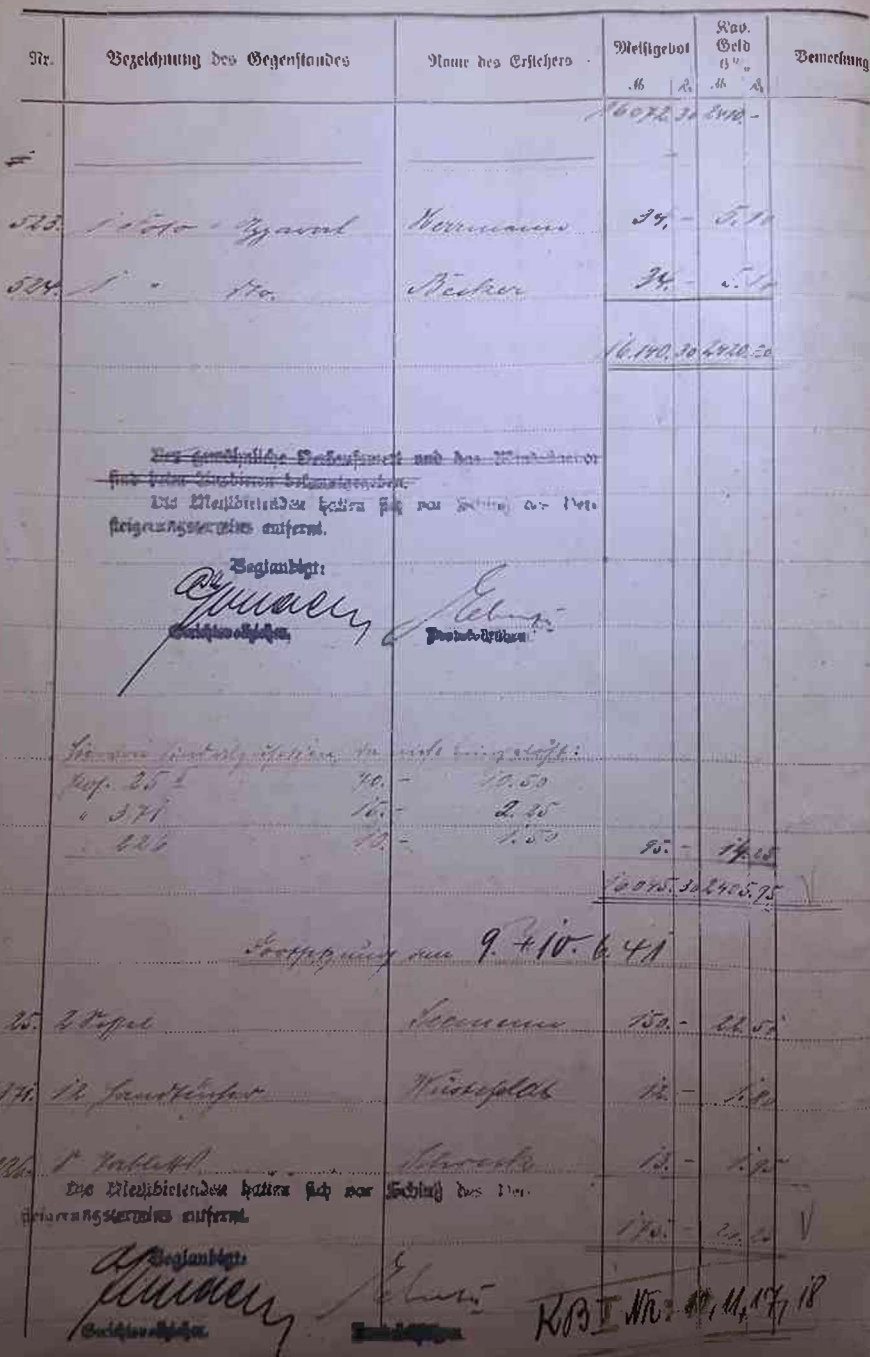 Nr. Bezeichnung des Gegenstandes Name des Erstehers Meistgebot Kav. Geld Bemerkung
M R M R
16072.30 2410.-
523. 1 Foto Herrmann 34.- 5.10
524. 1 " do. Becker 34.- 5.10
16.140.30 2420.20
Das gewöhnliche Verkaufswert und das Mindestgebot
sind beim Ausbieten bekanntgegeben.
Die Meistbietenden hatten sich vor Schluß des Ver-
steigerungstermins entfernt.
Beglaubigt:
Gerichtsvollzieher.
da nicht eingelöst:
Pos. 25 70.- 10.50
" 371 15.- 2.25
" 226 10.- 1.50 95.- 14.25
16045.30 2405.95
Fortsetzung am 9. + 10. 6. 41
25. 2 150.- 22.50
371. 12 Handtücher Wüstefeldt 12.- 1.80
226. 1 Tablett 13.- 1.95
Die Meistbietenden hatten sich vor Schluß des Ver-
steigerungstermins entfernt.
175.-
Beglaubigt:
Gerichtsvollzieher.
KB I Nr: 10, 11, 17, 18